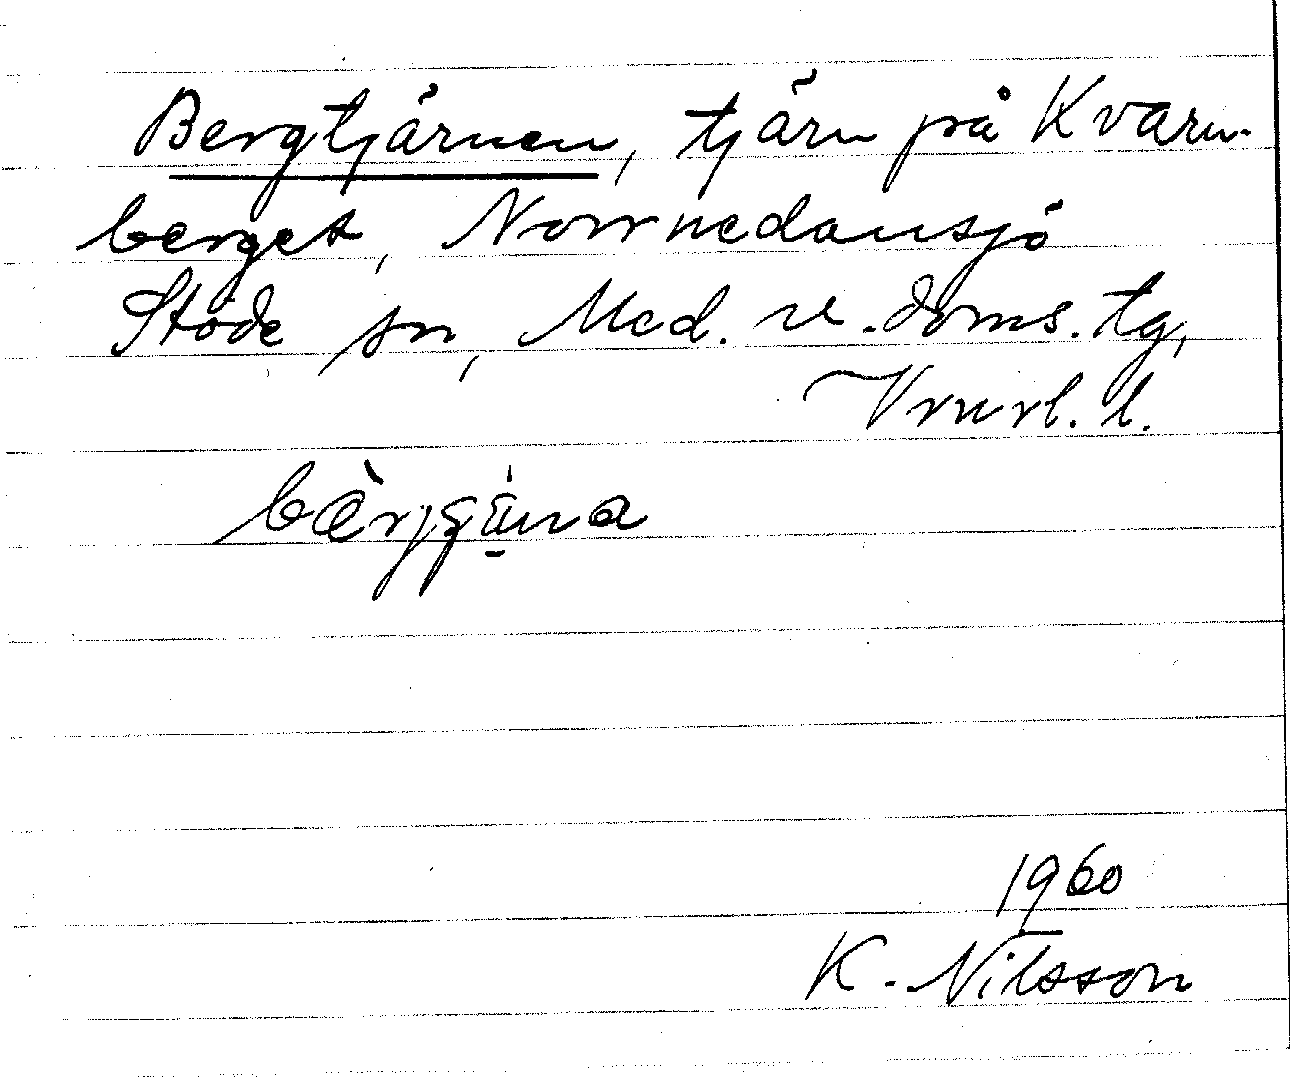 Bergtjärnen, tjärn på Kvarn-
berget, Norrnedansjö
Stöde sn, Med. v. doms. tg,
Vnrl. l.
1960
K. Nilsson